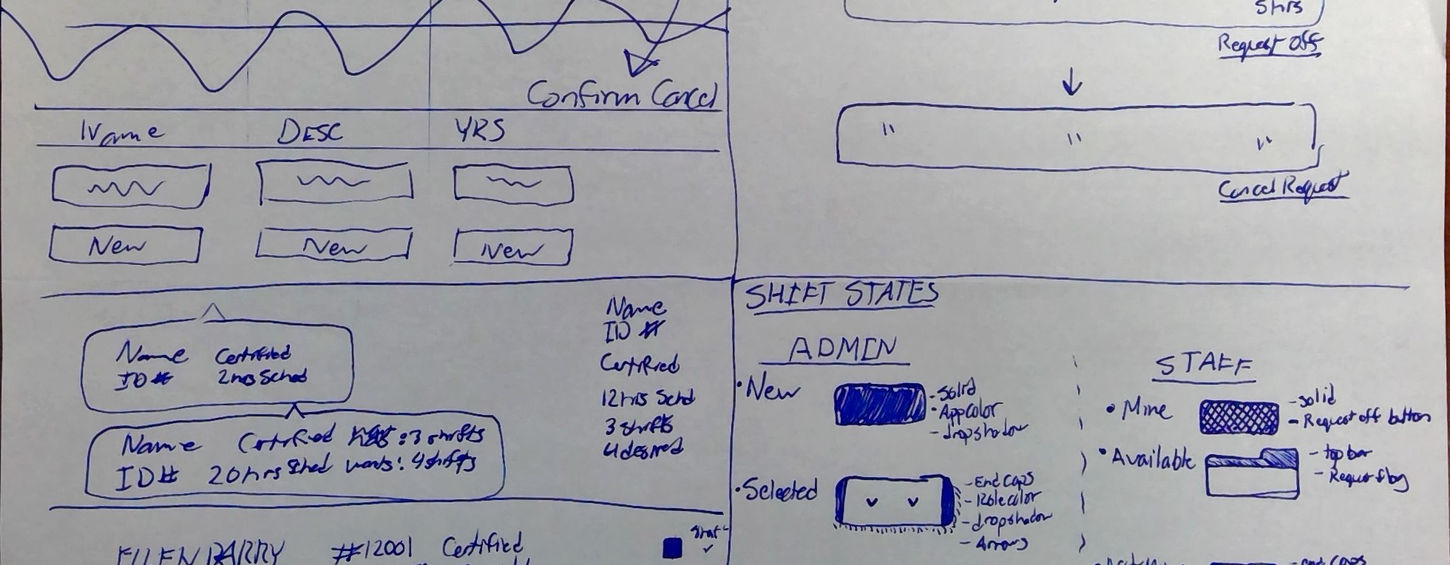 Confirm Cancel
Name DESC YRS
New New New
Name Certified
ID# 2 hrs Sched
Name Certified : 3 shifts
ID# 20 hrs Sched wants: 4 shifts
Name
ID #
Certified
12 hrs Schd
3 shifts
4 desired
#12001 Certified
5 hrs
Request Off
" " "
Cancel Request
SHIFT STATES
ADMIN
• New
- Solid
• App color
- dropshadow
• Selected
- End Caps
- Role color
- dropshadow
- Arrows
STAFF
• Mine
- solid
- Request off button
• Available
- top bar
- Request flag
- end caps